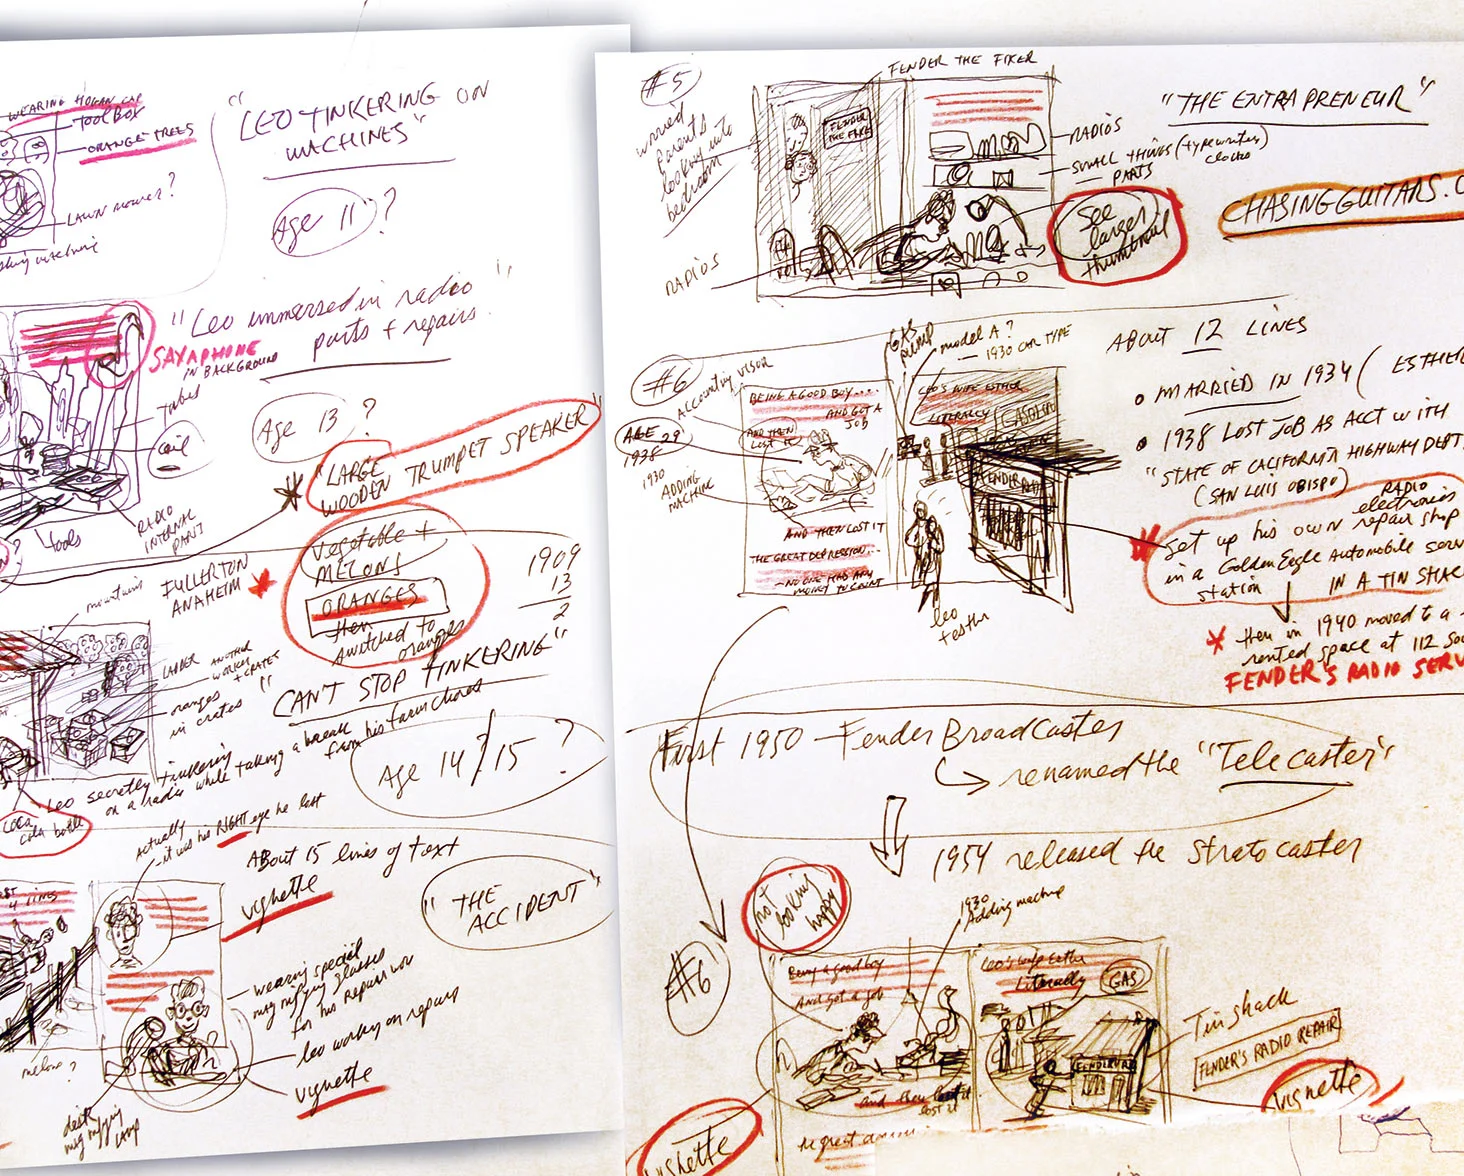 WEARING HOGAN CAP
TOOLBOX
ORANGE TREES
LAWN MOWER?
"LEO TINKERING ON
MACHINES"
Age 11?
"Leo immersed in radio
parts + repairs"
SAXAPHONE
IN BACKGROUND
tubes
coil
Age 13?
RADIO
INTERNAL
PART
tools
"LARGE
WOODEN TRUMPET SPEAKER
vegetable +
MELONS
ORANGES
then
switched to
oranges
1909
13
2
mountains
FULLERTON
ANAHEIM
LADDER
ANOTHER
WORKER
+ CRATES
oranges
in crates
"CAN'T STOP TINKERING"
Leo secretly tinkering
on a radio while taking a break
from his farm chores
Age 14/15?
COCA
cola bottle
Actually
it was his RIGHT eye he lost
About 15 lines of text
vignette
"THE
ACCIDENT"
4 LINES
wearing special
magnifying glasses
for his repair work
Leo working on repairs
vignette
melons?
desk
magnifying
lamp
#5
FENDER THE FIXER
worried
Parents
looking into
bedroom
FENDER
THE FIXER
"THE ENTRAPRENEUR"
RADIOS
SMALL THINGS (typewriter)
clocks
PARTS
See
larger
thumbnail
CHASINGGUITARS.C
RADIOS
#6
Accounting visor
GAS
pump
model A?
1930 CAR TYPE
ABOUT 12 LINES
AGE 29
1938
1930
ADDING
MACHINE
BEING A GOOD BOY....
AND GOT A
JOB
AND THEN
LOST IT
LEO'S WIFE ESTHER
LITERALLY
AND THEN LOST IT
THE GREAT DEPRESSION...
NO ONE HAD ANY
MONEY TO COUNT
FENDER RA
Leo
+ esther
MARRIED IN 1934 (ESTHER
1938 LOST JOB AS ACCT WITH
"STATE OF CALIFORNIA HIGHWAY DEPT.
(SAN LUIS OBISPO)
RADIO
electronics
set up his own repair shop
in a Golden Eagle Automobile serv
station
IN A TIN SHAC
then in 1940 moved to a
rented space at 112 So
FENDER'S RADIO SERV
First 1950 - Fender BroadCaster
renamed the "Telecaster"
1954 released the Stratocaster
not
looking
happy
1930
Adding machine
#6
Being a good boy
And got a job
Leo's wife Esther
Literally
GAS
and then lost it
lost it
FENDER RA
Tin shack
FENDER'S RADIO REPAIR
vignette
vignette